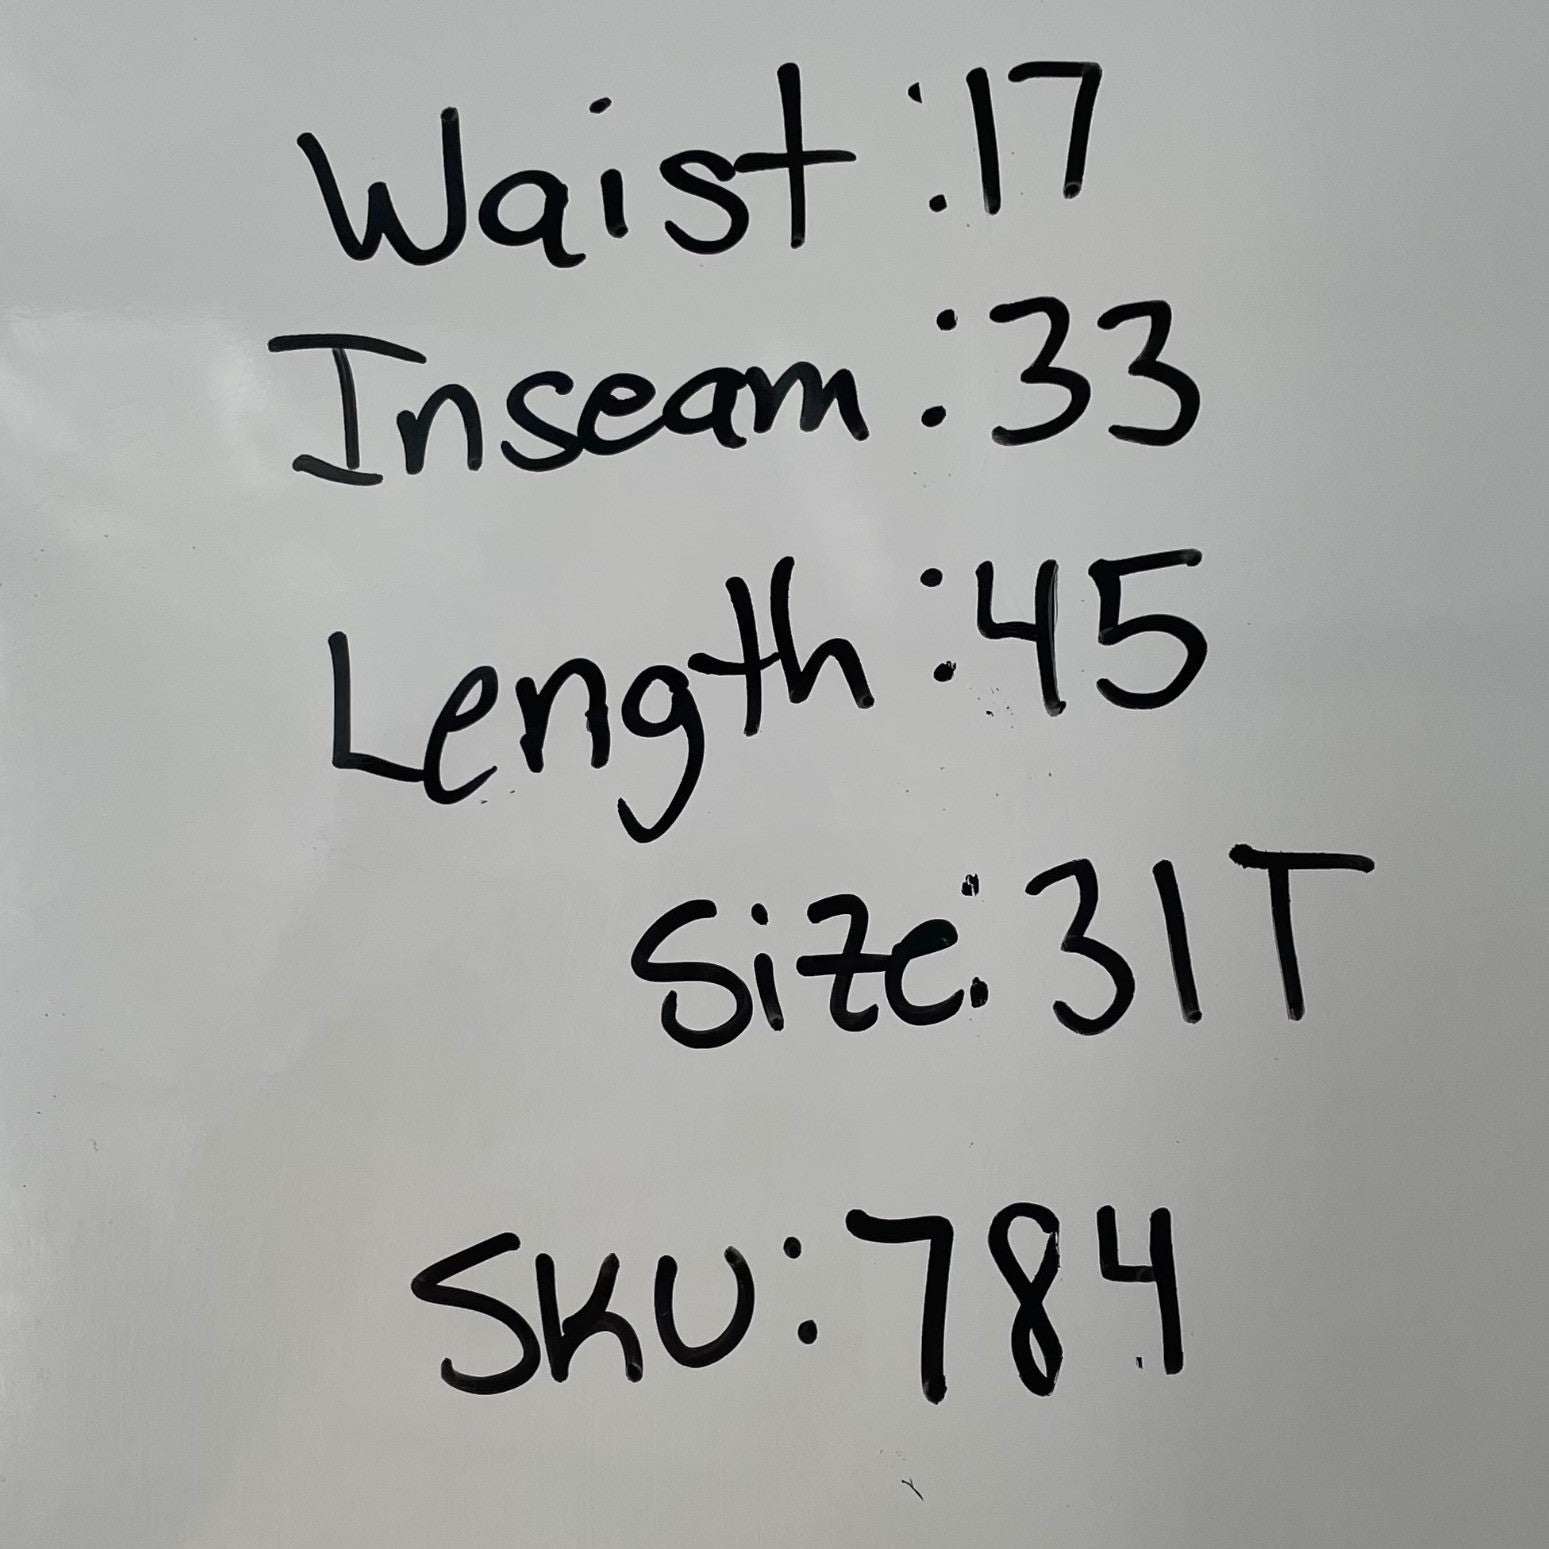 Waist :17
Inseam :33
Length :45
Size: 31T
SKU: 784